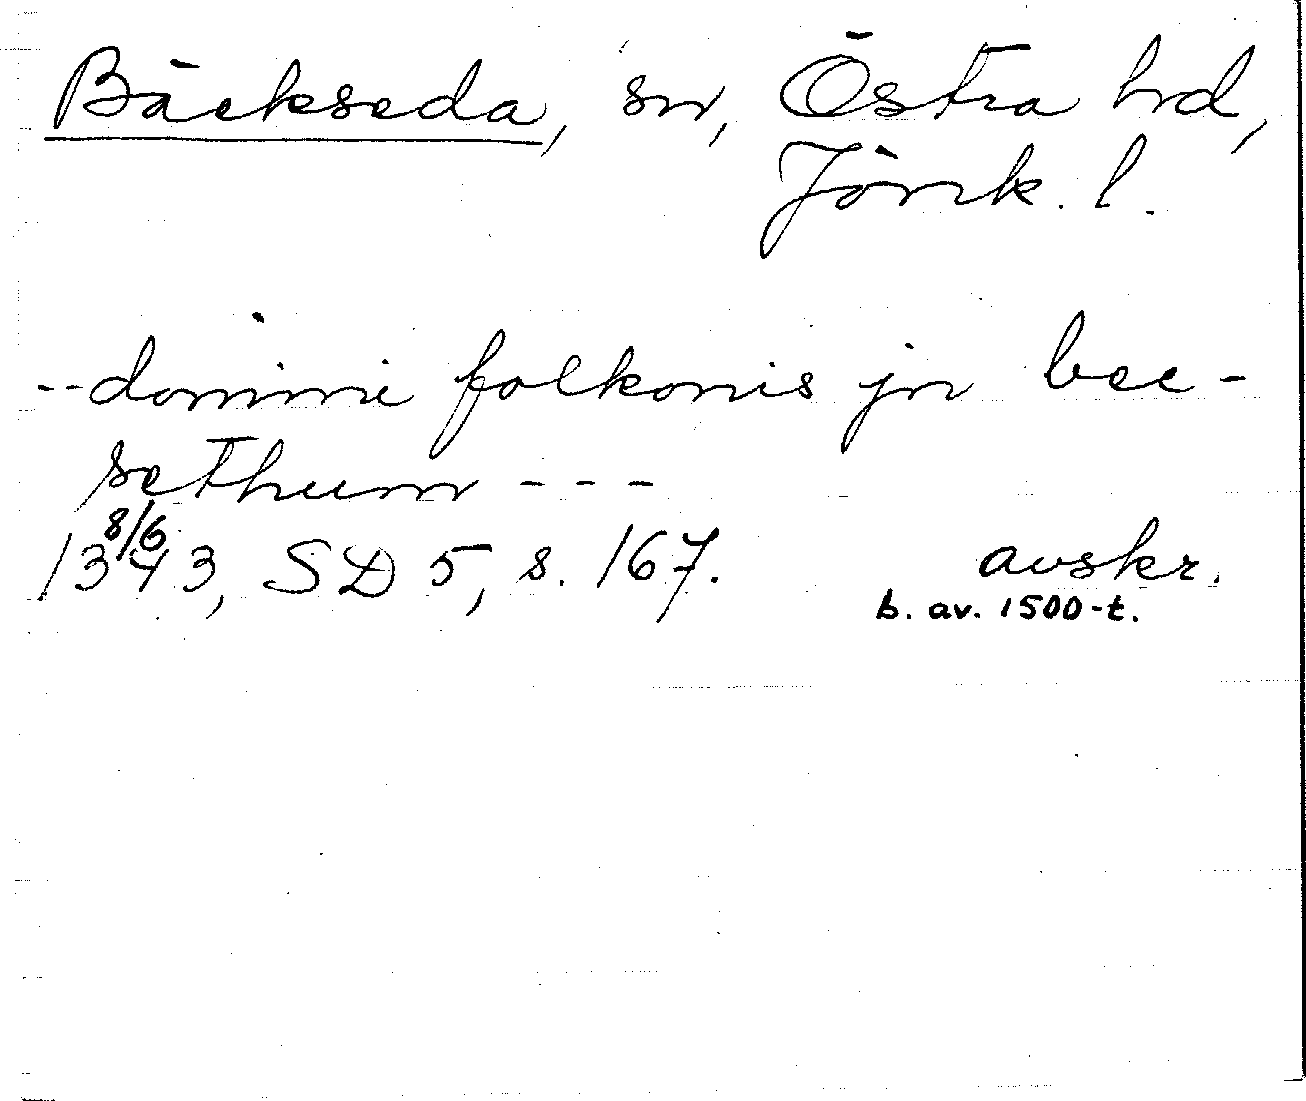 Bäckseda, sn, Östra hd,
Jönk. l.
-- domini folkonis jn bec-
sethum ---
8/6
1343, SD 5, s. 167. avskr.
b. av. 1500-t.